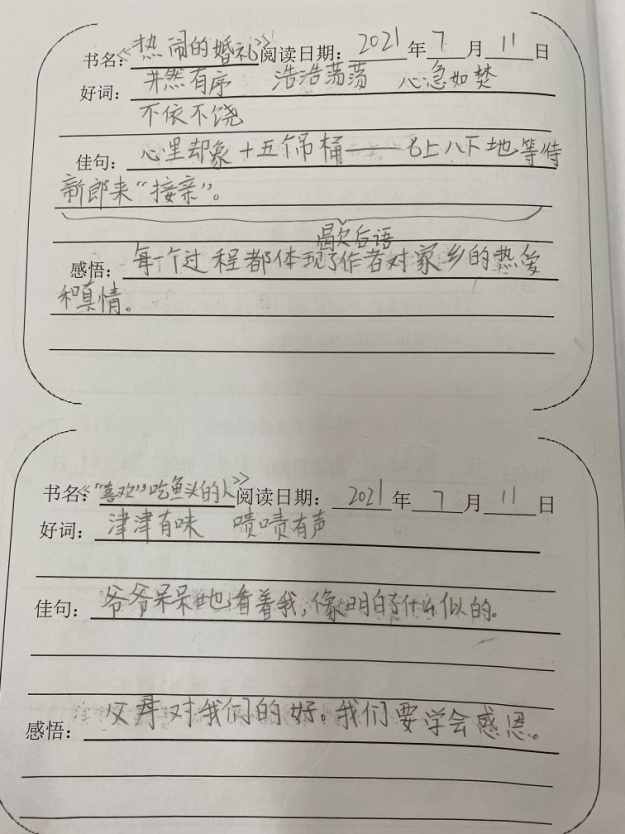 书名:《热闹的婚礼》阅读日期:2021年7月11日
好词:井然有序 浩浩荡荡 心急如焚
不依不饶
佳句:心里却象十五个吊桶——七上八下地等待
新郎来“接亲”。
歇后语
感悟:每一个过程都体现了作者对家乡的热爱
和真情。
书名:《“喜欢”吃鱼头的人》阅读日期:2021年7月11日
好词:津津有味 啧啧有声
佳句:爷爷呆呆地看着我,像明白了什么似的。
感悟:父母对我们的好。我们要学会感恩。